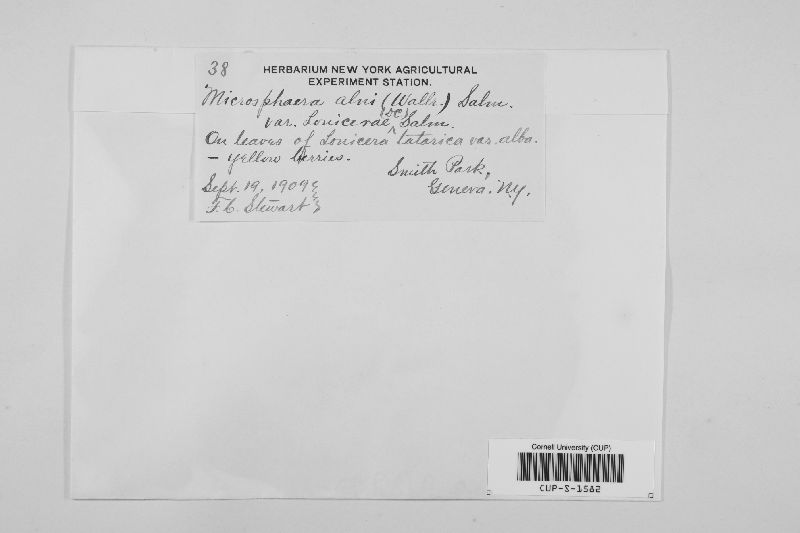 38
HERBARIUM NEW YORK AGRICULTURAL
EXPERIMENT STATION.
Microsphaera alni (Wallr.) Salm.
var. Lonicerae (DC) Salm.
On leaves of Lonicera tatarica var. alba.
– yellow berries.
Smith Park,
Geneva. N.Y.
Sept. 19, 1909
F.C. Stewart
Cornell University (CUP)
CUP-S-1562